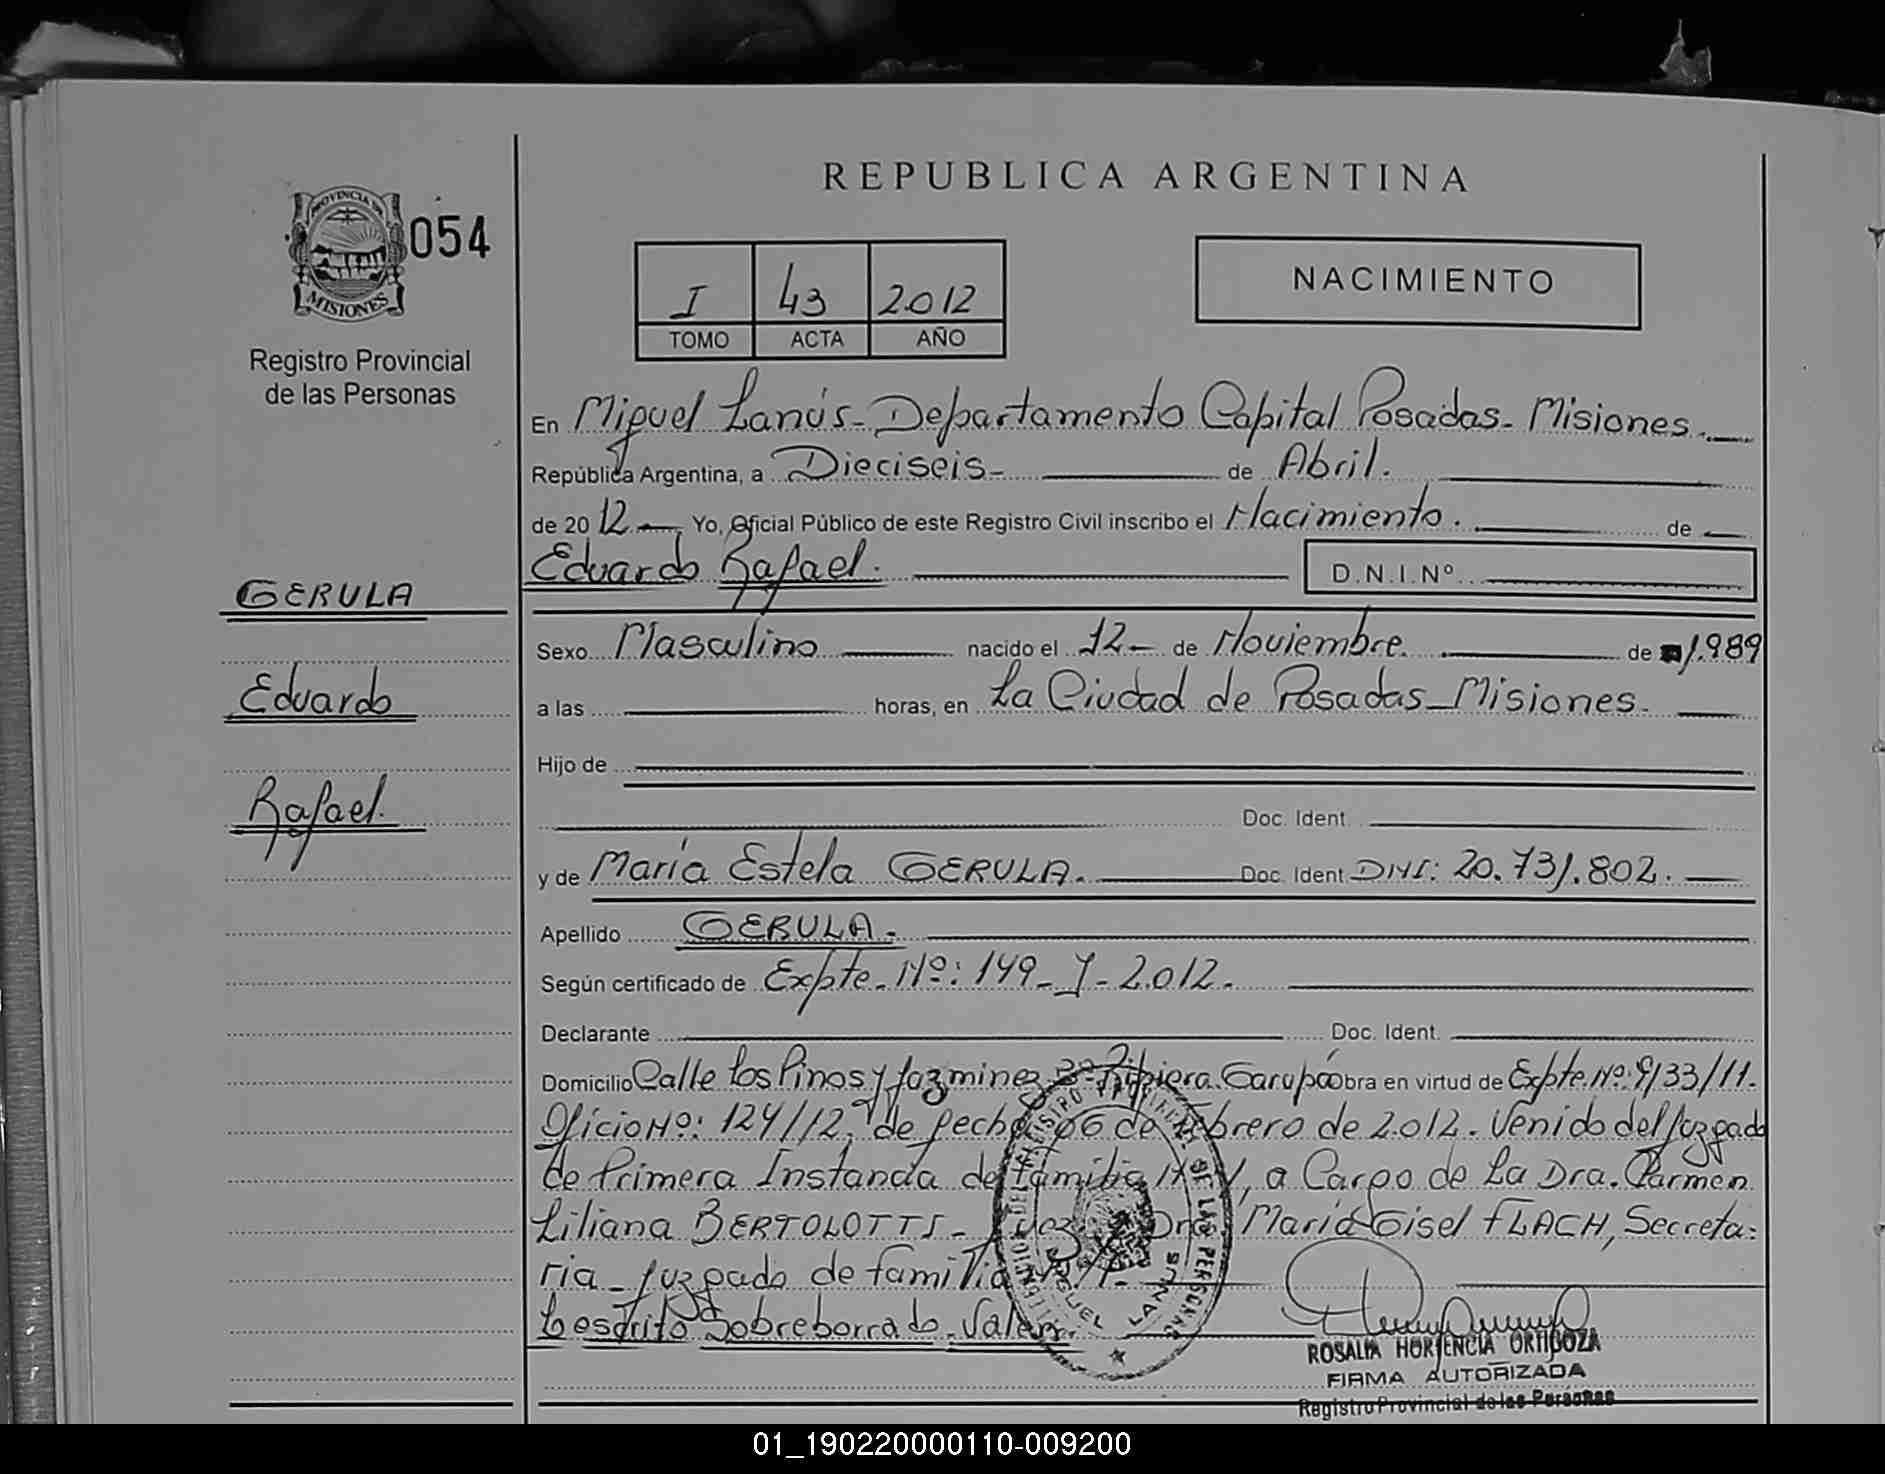 REPUBLICA ARGENTINA
PROVINCIA DE
MISIONES
054
Registro Provincial
de las Personas
I 43 2012
TOMO ACTA AÑO
NACIMIENTO
GERULA
Eduardo
Rafael.
En Miguel Lanús - Departamento Capital Posadas - Misiones.
República Argentina, a Dieciseis - de Abril.
de 20 12 Yo, Oficial Público de este Registro Civil inscribo el Nacimiento. de
Eduardo Rafael. D.N.I.Nº
Sexo Masculino nacido el 12 - de Noviembre. de 1.989
a las horas, en La Ciudad de Posadas - Misiones.
Hijo de
Doc. Ident.
y de María Estela GERULA. Doc. Ident DNI: 20.731.802.
Apellido GERULA.
Según certificado de Expte. Nº: 149 - J - 2.012.
Declarante Doc. Ident.
Domicilio Calle Los Pinos y Jazmines Ribiera Garupá obra en virtud de Expte. Nº: 9133/11.
Oficio Nº: 124/12, de fecha 06 de Febrero de 2.012. Venido del Juzgado
de Primera Instancia de Familia Nº 1, a Cargo de La Dra. Carmen
Liliana BERTOLOTTI - Juez y Dra María Gisel FLACH, Secreta:
ria - Juzgado de familia Nº 1.
Lo escrito Sobreborrado. Valen.
REGISTRO PROVINCIAL DE LAS PERSONAS
MIGUEL LANUS
ROSALIA HORTENCIA ORTIGOZA
FIRMA AUTORIZADA
Registro Provincial de las Personas
01_190220000110-009200